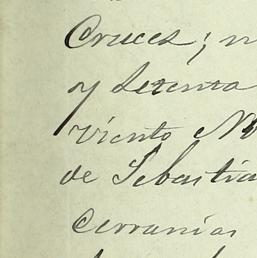 Cruces; n
y setenta
viento N
de Sebastia
Cerranias